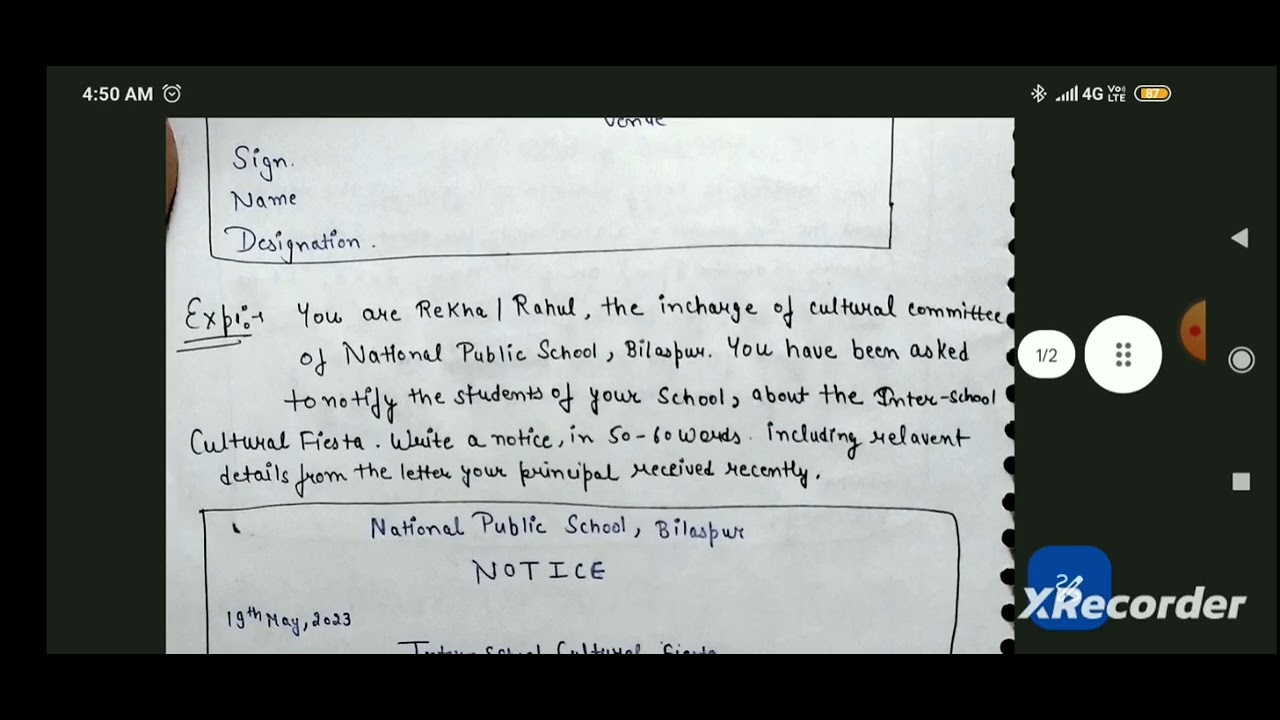 4:50 AM
4G Vo) LTE 87
Venue
Sign.
Name
Designation.
Expl:→ You are Rekha / Rahul, the incharge of cultural committee
of National Public School, Bilaspur. You have been asked
to notify the students of your School, about the Inter-school
Cultural Fiesta. Write a notice, in 50-60 words. including relavent
details from the letter your principal received recently.
1/2
National Public School, Bilaspur
NOTICE
19th May, 2023
Inter School Cultural Fiesta
XRecorder